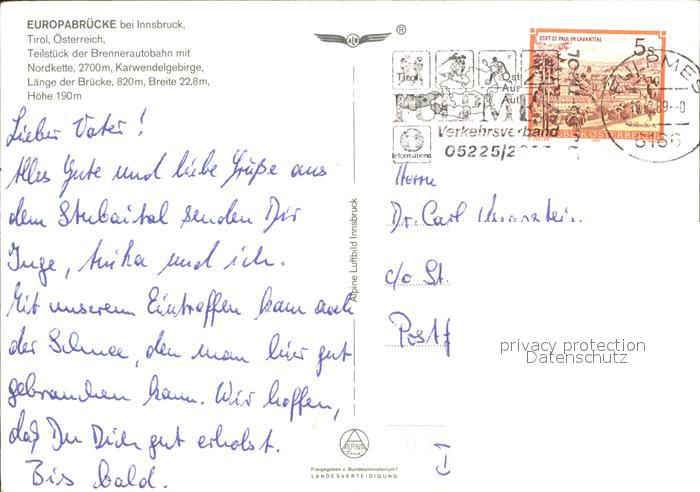 EUROPABRÜCKE bei Innsbruck,
Tirol, Österreich,
Teilstück der Brennerautobahn mit
Nordkette, 2700m, Karwendelgebirge,
Länge der Brücke, 820m, Breite 22,8m,
Höhe 190m
Lieber Vater!
Alles Gute und liebe Grüße aus
dem Stubaital senden Dir
Inge, Anka und ich.
Mit unserem Eintreffen kam auch
der Schnee, den man hier gut
gebrauchen kann. Wir hoffen,
daß Du Dich gut erholst.
Biss bald.
Alpine Luftbild Innsbruck
ALPINE
Freigegeben v. Bundesministerium f
LANDESVERTEIDIGUNG
®
STIFT ST. PAUL IM LAVANTTAL
5s
REPUBLIK ÖSTERREICH
Tirol
Öst
Aus
Aut
FULPMES
6166
Verkehrsverband
Informations
05225/2
Herrn
Dr. Carl
c/o St.
Postf
privacy protection
Datenschutz